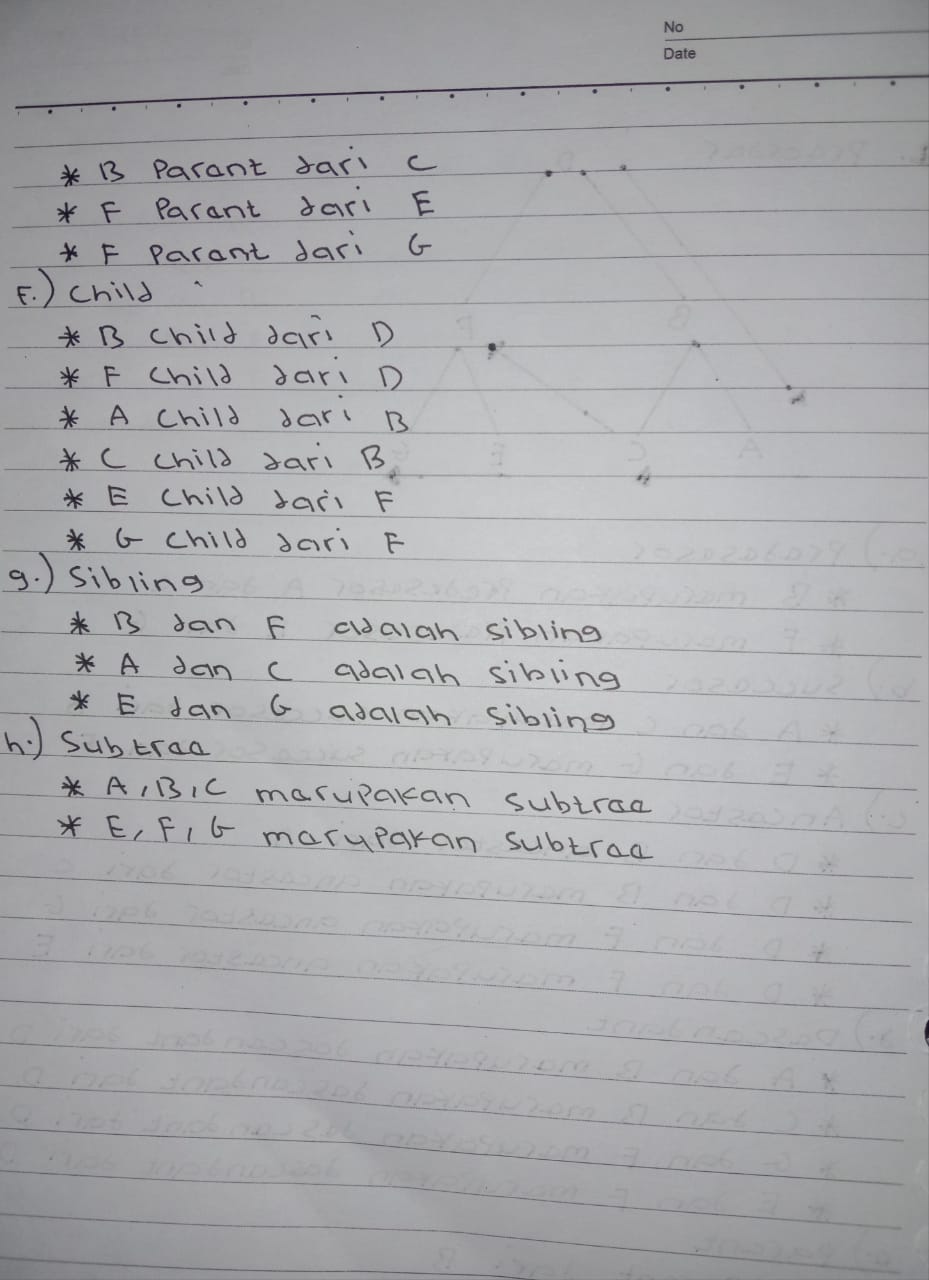 No
Date
* B Parant dari C
* F Parant dari E
* F Parant dari G
F.) Child
* B Child dari D
* F Child dari D
* A Child dari B
* C Child dari B
* E Child dari F
* G Child dari F
g.) Sibling
* B dan F adalah sibling
* A dan C adalah sibling
* E dan G adalah sibling
h.) Subtraa
* A, B, C marupakan Subtraa
* E, F, G marupakan Subtraa